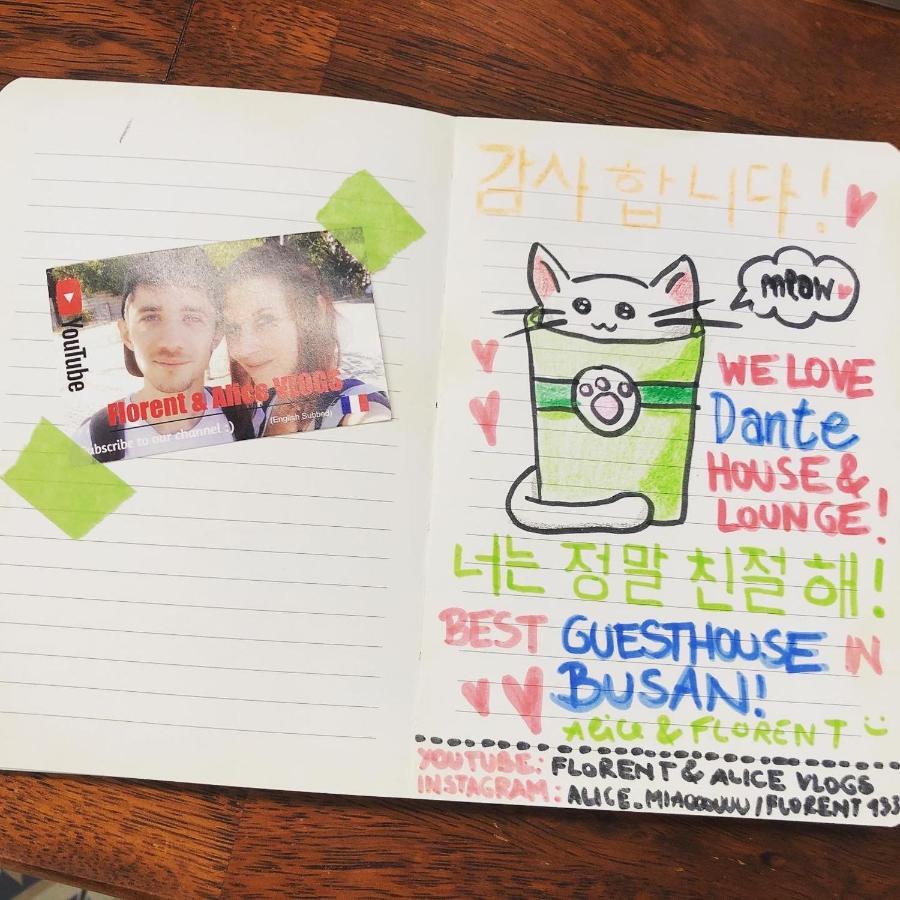 YouTube
Florent & Alice VLOGS
(English Subbed)
ubscribe to our channel :)
감사합니다!
meow
WE LOVE
Dante
HOUSE &
LOUNGE!
너는 정말 친절해!
BEST GUESTHOUSE IN
BUSAN!
ALICE & FLORENT
YOUTUBE: FLORENT & ALICE VLOGS
INSTAGRAM: